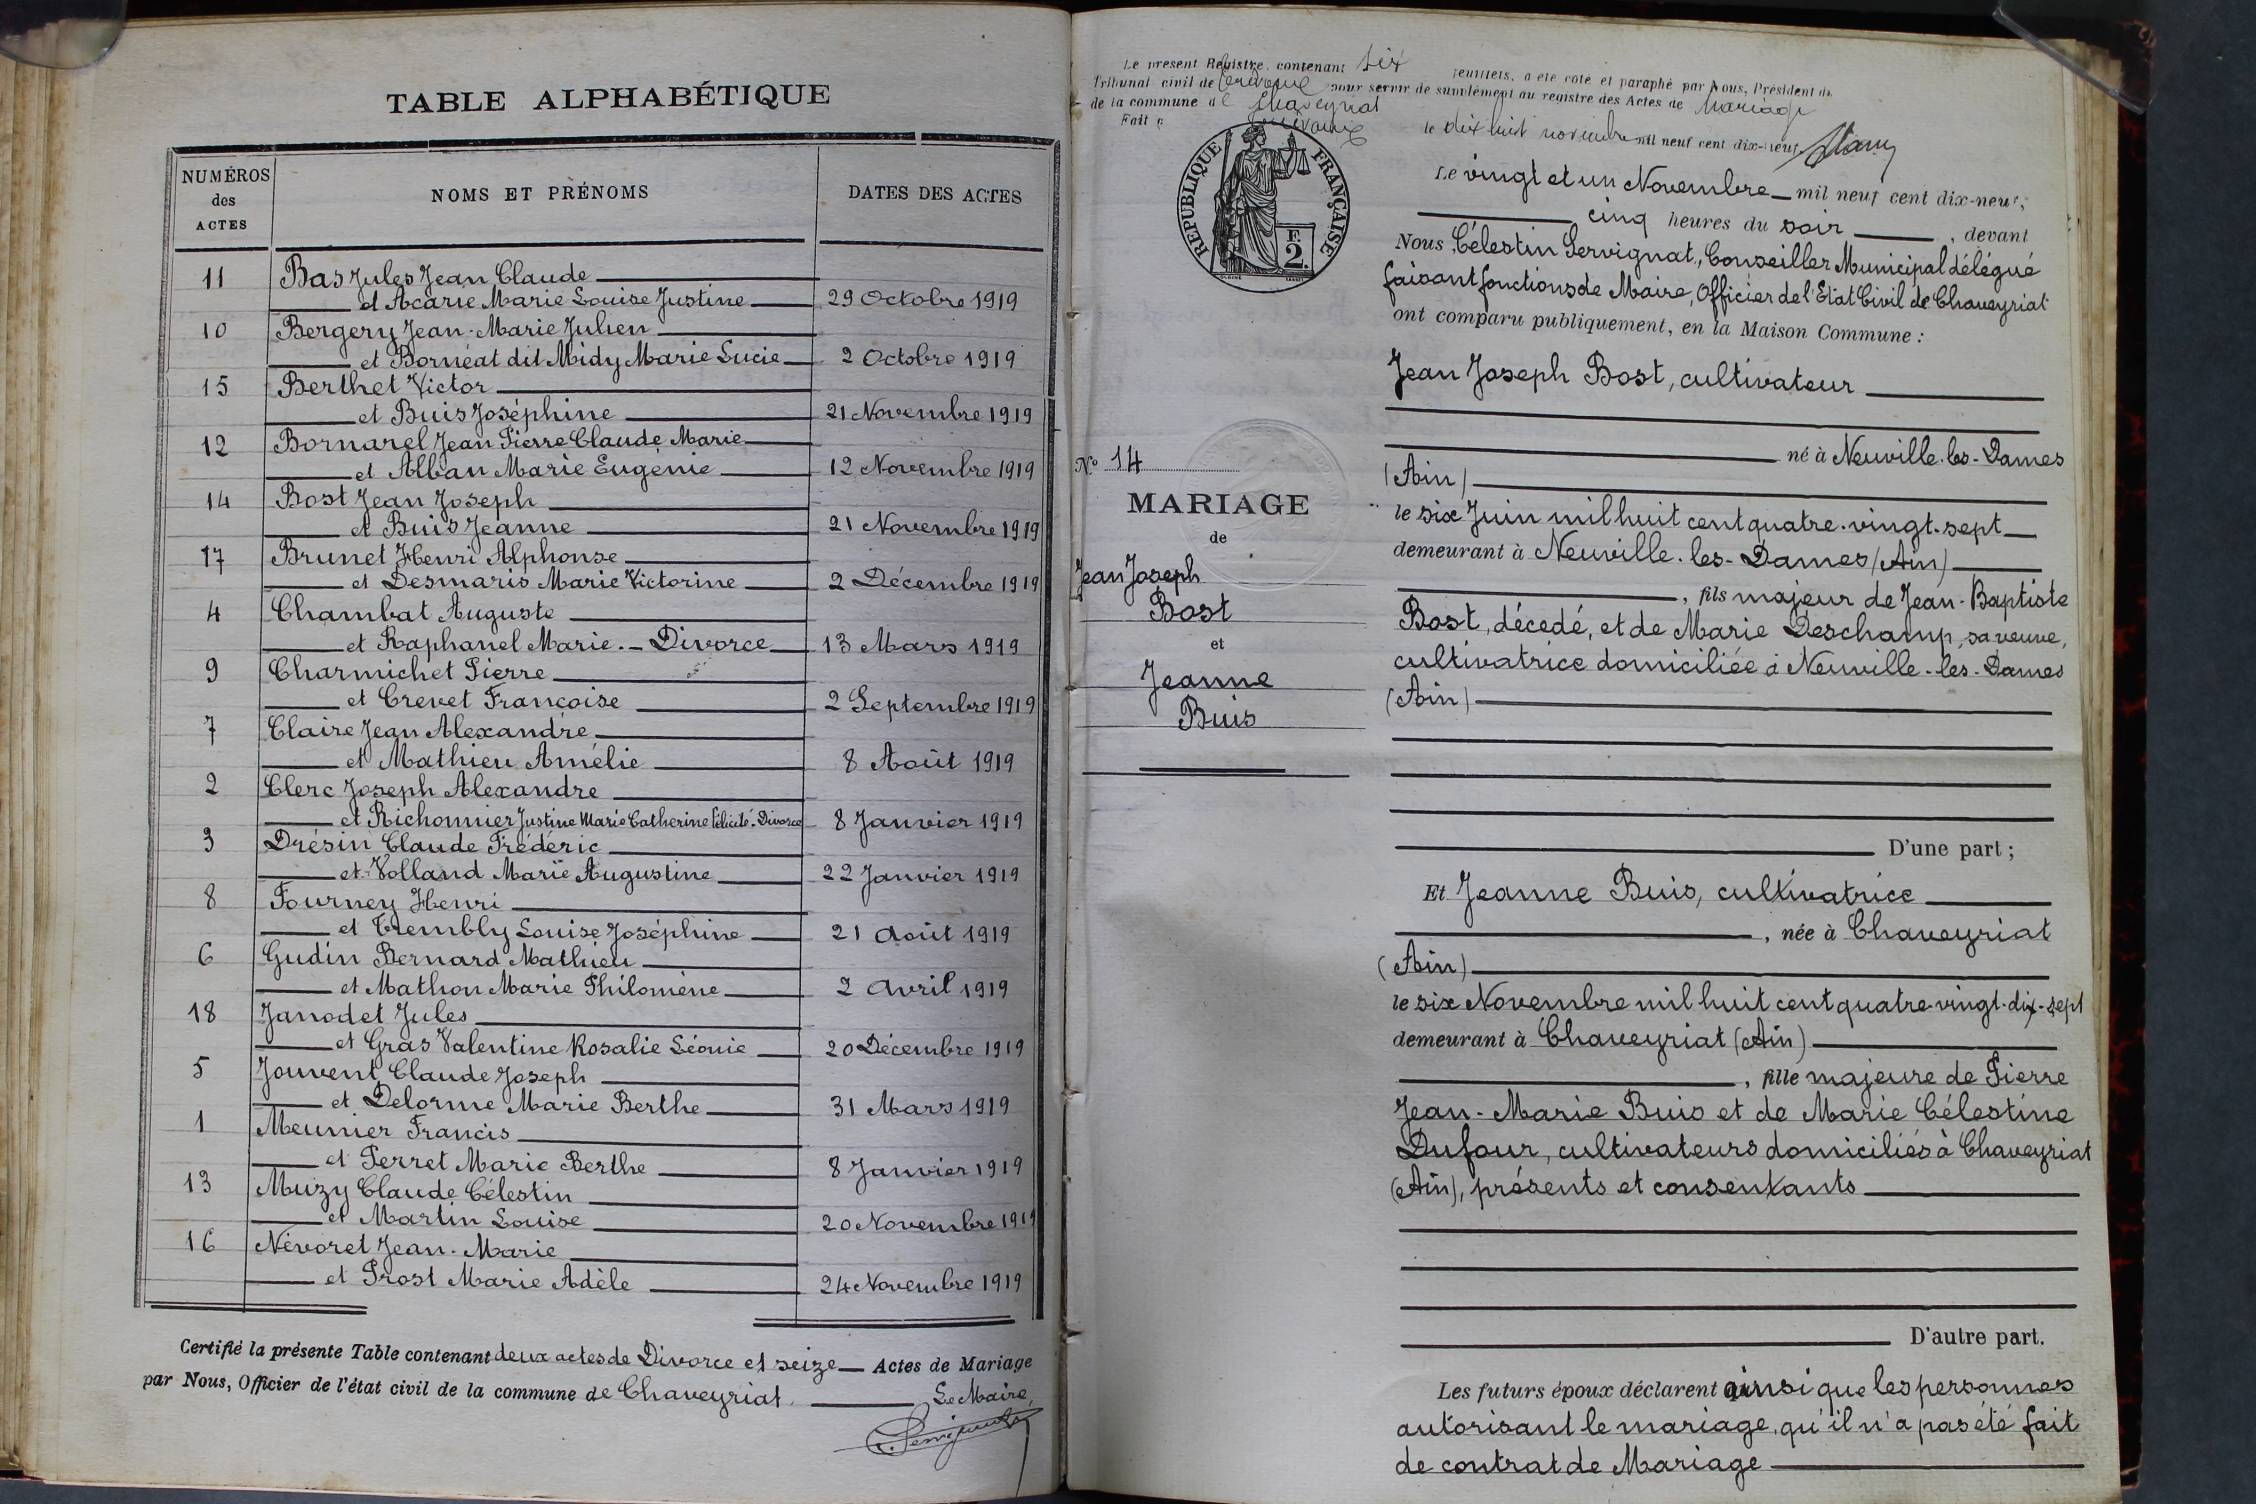 TABLE ALPHABÉTIQUE
NUMÉROS
des
ACTES
NOMS ET PRÉNOMS
DATES DES ACTES
11 Bas Jules Jean Claude
et Acarie Marie Louise Justine 29 Octobre 1919
10 Bergery Jean-Marie Julien
et Bornéat dit Midy Marie Lucie 2 Octobre 1919
15 Berthet Victor
et Buis Joséphine 21 Novembre 1919
12 Bornarel Jean Pierre Claude Marie
et Alban Marie Eugénie 12 Novembre 1919
14 Bost Jean Joseph
et Buis Jeanne 21 Novembre 1919
17 Brunet Henri Alphonse
et Desmaris Marie Victorine 2 Décembre 1919
4 Chambat Auguste
et Raphanel Marie.- Divorce 13 Mars 1919
9 Charmichet Pierre
et Crevet Françoise 2 Septembre 1919
7 Claire Jean Alexandre
et Mathieu Amélie 8 Août 1919
2 Clerc Joseph Alexandre
et Richonnier Justine Marie Catherine Félicité-Divorce 8 Janvier 1919
3 Drésin Claude Frédéric
et Volland Marie Augustine 22 Janvier 1919
8 Fourney Henri
et Trembly Louise Joséphine 21 Août 1919
6 Gudin Bernard Mathieu
et Mathon Marie Philomène 2 Avril 1919
18 Janodet Jules
et Gras Valentine Rosalie Léonie 20 Décembre 1919
5 Jouvent Claude Joseph
et Delorme Marie Berthe 31 Mars 1919
1 Meunier Francis
et Perret Marie Berthe 8 Janvier 1919
13 Muzy Claude Célestin
et Martin Louise 20 Novembre 1919
16 Névoret Jean-Marie
et Prost Marie Adèle 24 Novembre 1919
Certifié la présente Table contenant deux actes de Divorce et seize Actes de Mariage
par Nous, Officier de l'état civil de la commune de Chaveyriat
Le Maire,
Le present Registre, contenant six feuillets, a été coté et paraphé par Nous, Président du
Tribunal civil de pour servir de supplément au registre des Actes de Mariage
de la commune de Chaveyriat
Fait à le dix huit novembre mil neuf cent dix-neuf
RÉPUBLIQUE FRANÇAISE
F.
2.
Le vingt et un Novembre mil neuf cent dix-neuf,
cinq heures du soir, devant
Nous Célestin Servignat, Conseiller Municipal délégué
faisant fonctions de Maire, Officier de l'Etat Civil de Chaveyriat
ont comparu publiquement, en la Maison Commune :
Jean Joseph Bost, cultivateur
né à Neuville-les-Dames
(Ain)
le six Juin mil huit cent quatre-vingt-sept
demeurant à Neuville-les-Dames (Ain)
, fils majeur de Jean-Baptiste
Bost, décedé, et de Marie Deschamp, sa veuve,
cultivatrice domiciliée à Neuville-les-Dames
(Ain)
D'une part ;
N° 14
MARIAGE
de
Jean Joseph
Bost
et
Jeanne
Buis
Et Jeanne Buis, cultivatrice
, née à Chaveyriat
(Ain)
le six Novembre mil huit cent quatre-vingt-dix-sept
demeurant à Chaveyriat (Ain)
, fille majeure de Pierre
Jean-Marie Buis et de Marie Célestine
Dufour, cultivateurs domiciliés à Chaveyriat
(Ain), présents et consentants
D'autre part.
Les futurs époux déclarent ainsi que les personnes
autorisant le mariage, qu'il n'a pas été fait
de contrat de Mariage